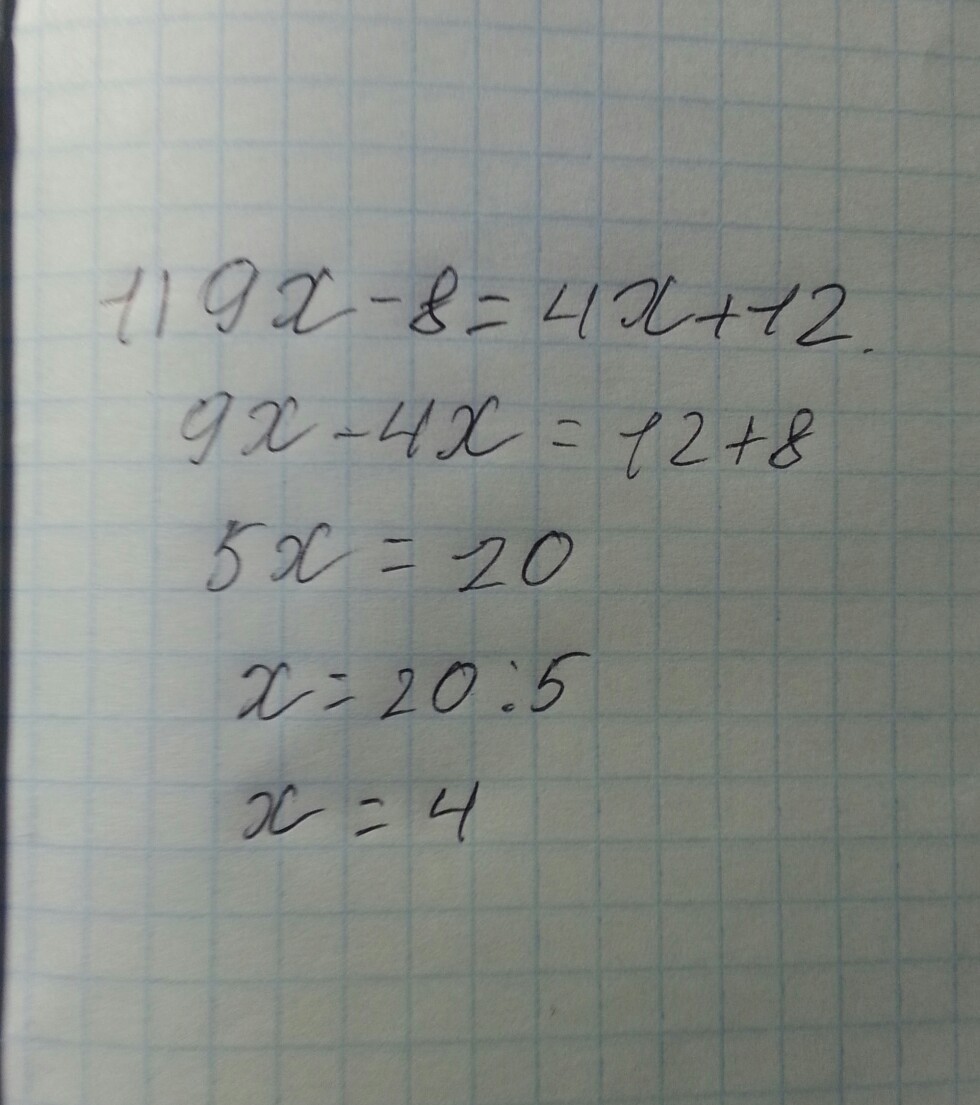 1) 9x - 8 = 4x + 12.
9x - 4x = 12 + 8
5x = 20
x = 20 : 5
x = 4